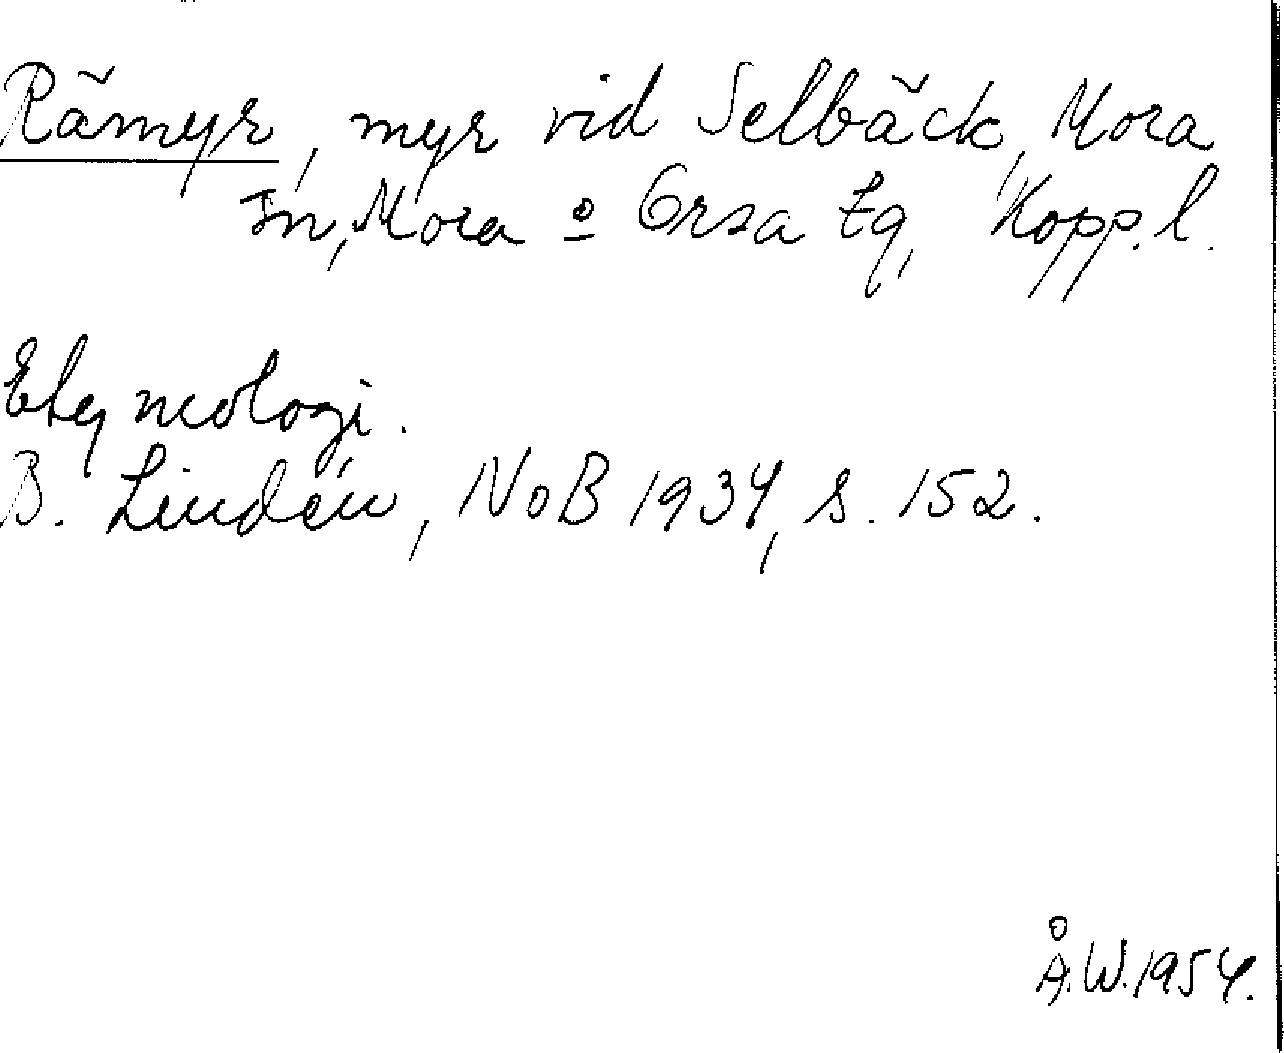 Rämyr, myr vid Selbäck, Mora
sn, Mora o Orsa tg, Kopp.l.
Etymologi.
B. Lindén, NoB 1934, s. 152.
Å.W. 1954.